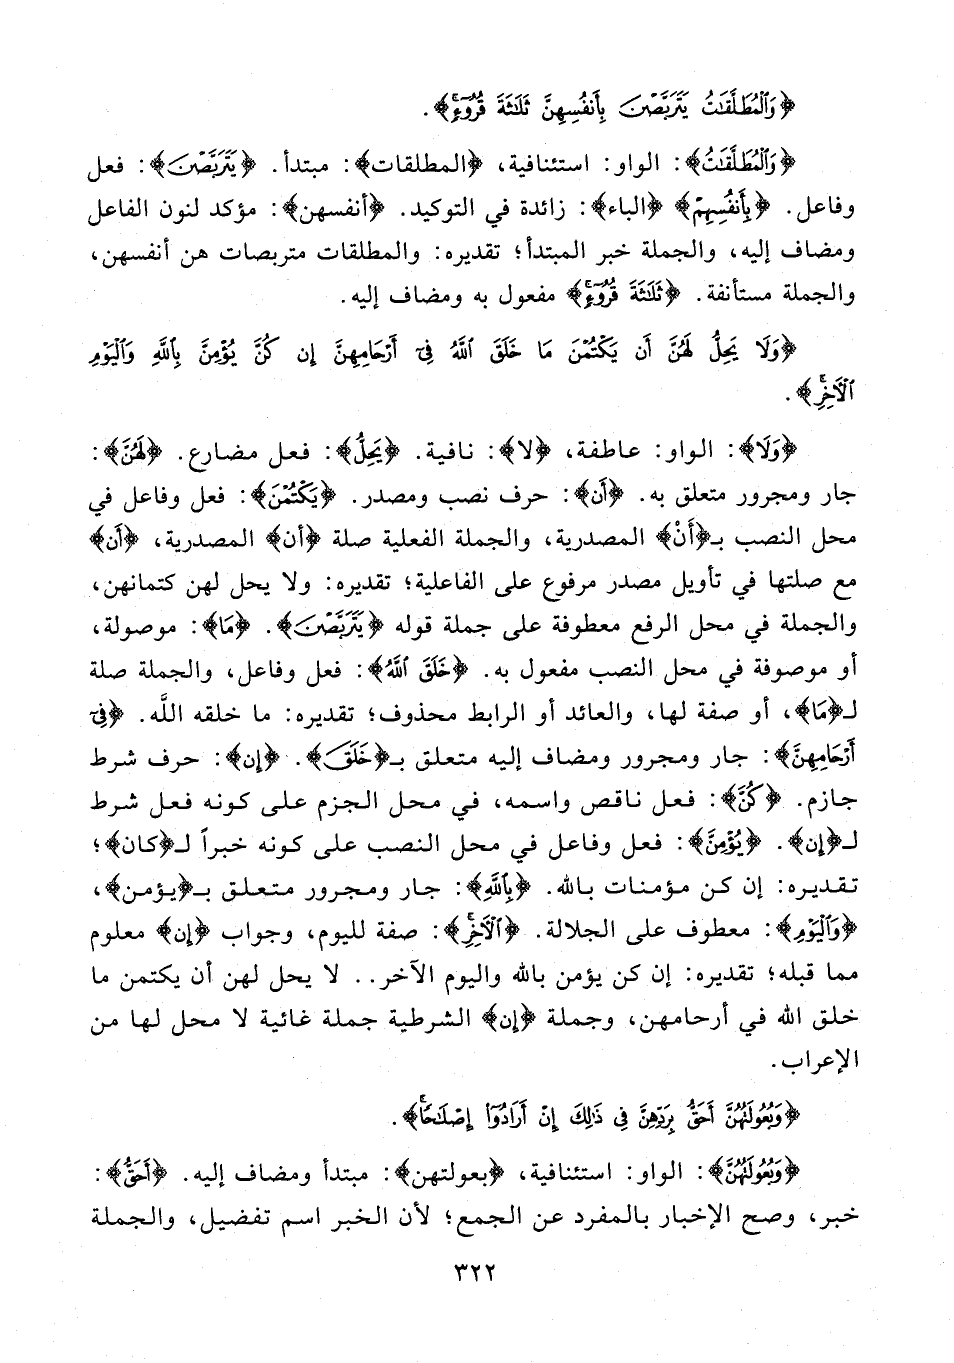 ﴿وَٱلْمُطَلَّقَٰتُ يَتَرَبَّصْنَ بِأَنفُسِهِنَّ ثَلَٰثَةَ قُرُوٓءٍۚ﴾.
﴿وَٱلْمُطَلَّقَٰتُ﴾: الواو: استئنافية، ﴿المطلقات﴾: مبتدأ. ﴿يَتَرَبَّصْنَ﴾: فعل
وفاعل. ﴿بِأَنفُسِهِمْ﴾ ﴿الباء﴾: زائدة في التوكيد. ﴿أنفسهن﴾: مؤكد لنون الفاعل
ومضاف إليه، والجملة خبر المبتدأ؛ تقديره: والمطلقات متربصات هن أنفسهن،
والجملة مستأنفة. ﴿ثَلَٰثَةَ قُرُوٓءٍۚ﴾ مفعول به ومضاف إليه.
﴿وَلَا يَحِلُّ لَهُنَّ أَن يَكْتُمْنَ مَا خَلَقَ ٱللَّهُ فِىٓ أَرْحَامِهِنَّ إِن كُنَّ يُؤْمِنَّ بِٱللَّهِ وَٱلْيَوْمِ
ٱلْأَخِرِۚ﴾.
﴿وَلَا﴾: الواو: عاطفة، ﴿لا﴾: نافية. ﴿يَحِلُّ﴾: فعل مضارع. ﴿لَهُنَّ﴾:
جار ومجرور متعلق به. ﴿أَن﴾: حرف نصب ومصدر. ﴿يَكْتُمْنَ﴾: فعل وفاعل في
محل النصب بـ﴿أَنْ﴾ المصدرية، والجملة الفعلية صلة ﴿أن﴾ المصدرية، ﴿أَن﴾
مع صلتها في تأويل مصدر مرفوع على الفاعلية؛ تقديره: ولا يحل لهن كتمانهن،
والجملة في محل الرفع معطوفة على جملة قوله ﴿يَتَرَبَّصْنَ﴾. ﴿مَا﴾: موصولة،
أو موصوفة في محل النصب مفعول به. ﴿خَلَقَ ٱللَّهُ﴾: فعل وفاعل، والجملة صلة
لـ﴿مَا﴾، أو صفة لها، والعائد أو الرابط محذوف؛ تقديره: ما خلقه اللَّه. ﴿فِىٓ
أَرْحَامِهِنَّ﴾: جار ومجرور ومضاف إليه متعلق بـ﴿خَلَقَ﴾. ﴿إِن﴾: حرف شرط
جازم. ﴿كُنَّ﴾: فعل ناقص واسمه، في محل الجزم على كونه فعل شرط
لـ﴿إن﴾. ﴿يُؤْمِنَّ﴾: فعل وفاعل في محل النصب على كونه خبراً لـ﴿كان﴾؛
تقديره: إن كن مؤمنات بالله. ﴿بِٱللَّهِ﴾: جار ومجرور متعلق بـ﴿يؤمن﴾،
﴿وَٱلْيَوْمِ﴾: معطوف على الجلالة. ﴿ٱلْأَخِرِۚ﴾: صفة لليوم، وجواب ﴿إن﴾ معلوم
مما قبله؛ تقديره: إن كن يؤمن بالله واليوم الآخر.. لا يحل لهن أن يكتمن ما
خلق الله في أرحامهن، وجملة ﴿إن﴾ الشرطية جملة غائية لا محل لها من
الإعراب.
﴿وَبُعُولَتُهُنَّ أَحَقُّ بِرَدِّهِنَّ فِى ذَٰلِكَ إِنْ أَرَادُوٓا۟ إِصْلَٰحًاۚ﴾.
﴿وَبُعُولَتُهُنَّ﴾: الواو: استئنافية، ﴿بعولتهن﴾: مبتدأ ومضاف إليه. ﴿أَحَقُّ﴾:
خبر، وصح الإخبار بالمفرد عن الجمع؛ لأن الخبر اسم تفضيل، والجملة
٣٢٢